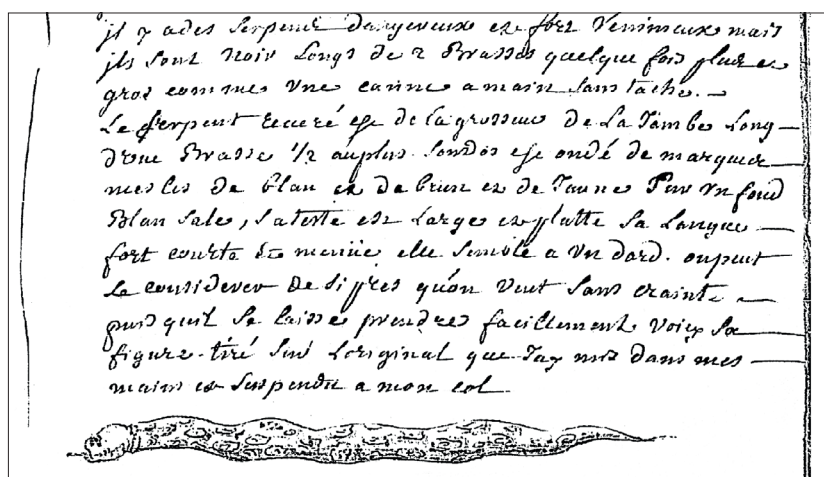 jl y a des serpent dangereux et fort Venimeux mais
jls sont noir Longs de 2 Brasses quelque fois plus et
gros comme une canne a main sans tache. —
Le serpent est de la grosseur de La Jambe Long —
d'une Brasse 1/2 au plus. son dos est ondé de marques
meslés de blan et de brun et de Jaune sur Un fond
Blan sale, sa teste est Large et platte sa Langue —
fort courte et menüe elle semble a Un dard. on peut
Le considerer de si pres qu'on Veut sans crainte —
puis qu'il se laisse prendre facillement Voicy sa
figure tiré sur L'original que J'ay mis dans mes —
mains et suspendu a mon col